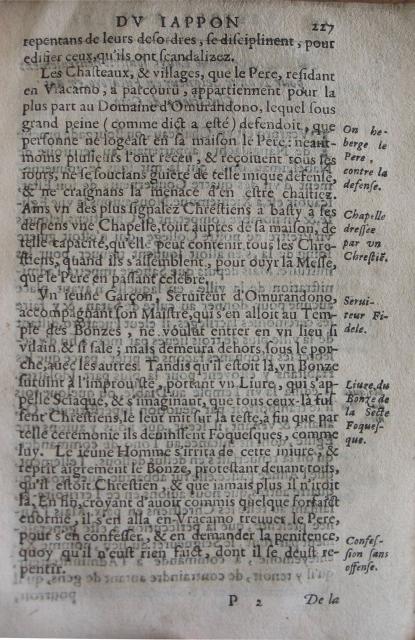 DV IAPPON 227
repentans de leurs desordres, se disciplinent, pour
edifier ceux, qu'ils ont scandalizez.
Les Chasteaux, & villages, que le Pere, residant
en Vracamo, a parcouru, appartiennent pour la
plus part au Domaine d'Omurandono, lequel sous
grand peine (comme dict a esté) defendoit, que
personne ne logeast en sa maison le Pere: neant-
moins plusieurs l'ont receu, & reçoiuent sous les
iours, ne se soucians guiere de telle inique defense,
& ne craignans la menace d'en estre chastiez.
Ains vn des plus signalez Chrestiens a basty a ses
despens vne Chapelle, tout aupres de sa maison, de
telle capacité, qu'elle peut contenir tous les Chre-
stiens, quand ils s'assemblent, pour ouyr la Messe,
que le Pere en passant celebre.
On he-
berge le
Pere,
contre la
defense.
Chapelle
dressee
par vn
Chrestiē.
Vn ieune Garçon, Seruiteur d'Omurandono,
accompagnant son Maistre, qui s'en alloit au Tem-
ple des Bonzes, ne voulut entrer en vn lieu si
vilain, & si sale; mais demeura dehors, sous le por-
che, auec les autres. Tandis qu'il estoit là, vn Bonze
suruint à l'improuiste, portant vn Liure, qui s'ap-
pelle Sciaque, & s'imaginant, que tous ceux-là fus-
sent Chrestiens, le leur mit sur la teste, à fin que par
telle ceremonie ils deuinssent Foquesques, comme
luy. Le ieune Homme s'irrita de ceste iniure, &
reprit aigrement le Bonze, protestant deuant tous,
qu'il estoit Chrestien, & que iamais plus il n'iroit
là. En fin, croyant d'auoir commis quelque forfaict
enorme, il s'en alla en Vracamo treuuer le Pere,
pour s'en confesser, & en demander la penitence,
quoy qu'il n'eust rien faict, dont il se deust re-
pentir.
Serui-
teur Fi-
dele.
Liure du
Bonze de
la Secte
Foques-
que.
Confes-
sion sans
offense.
P 2 De la